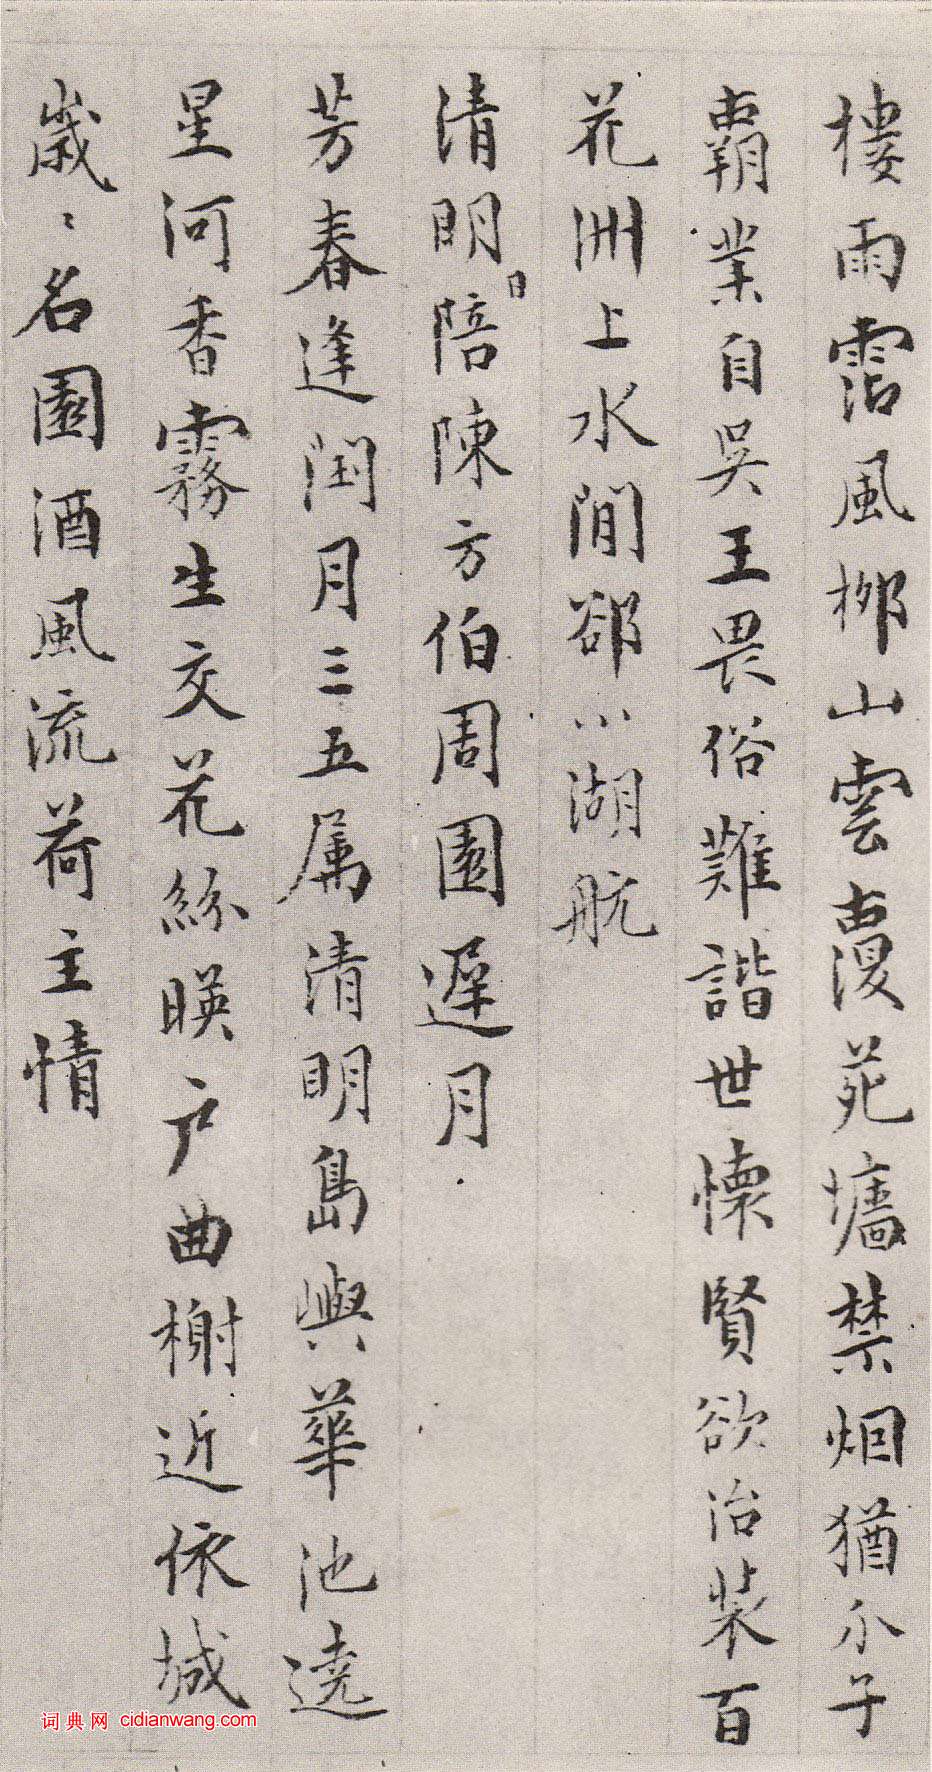 樓雨霑風栁山雲覆苑墻禁烟猶尒子
霸業自吳王畏俗難諧世懐賢欲治装百
花洲上水間郤小湖航
清明日陪陳方伯周園遲月
芳春逢閏月三五属清明島嶼華池遶
星河香霧生交花絲暎户曲榭近依城
歲〻名園酒風流荷主情
词典网 cidianwang.com